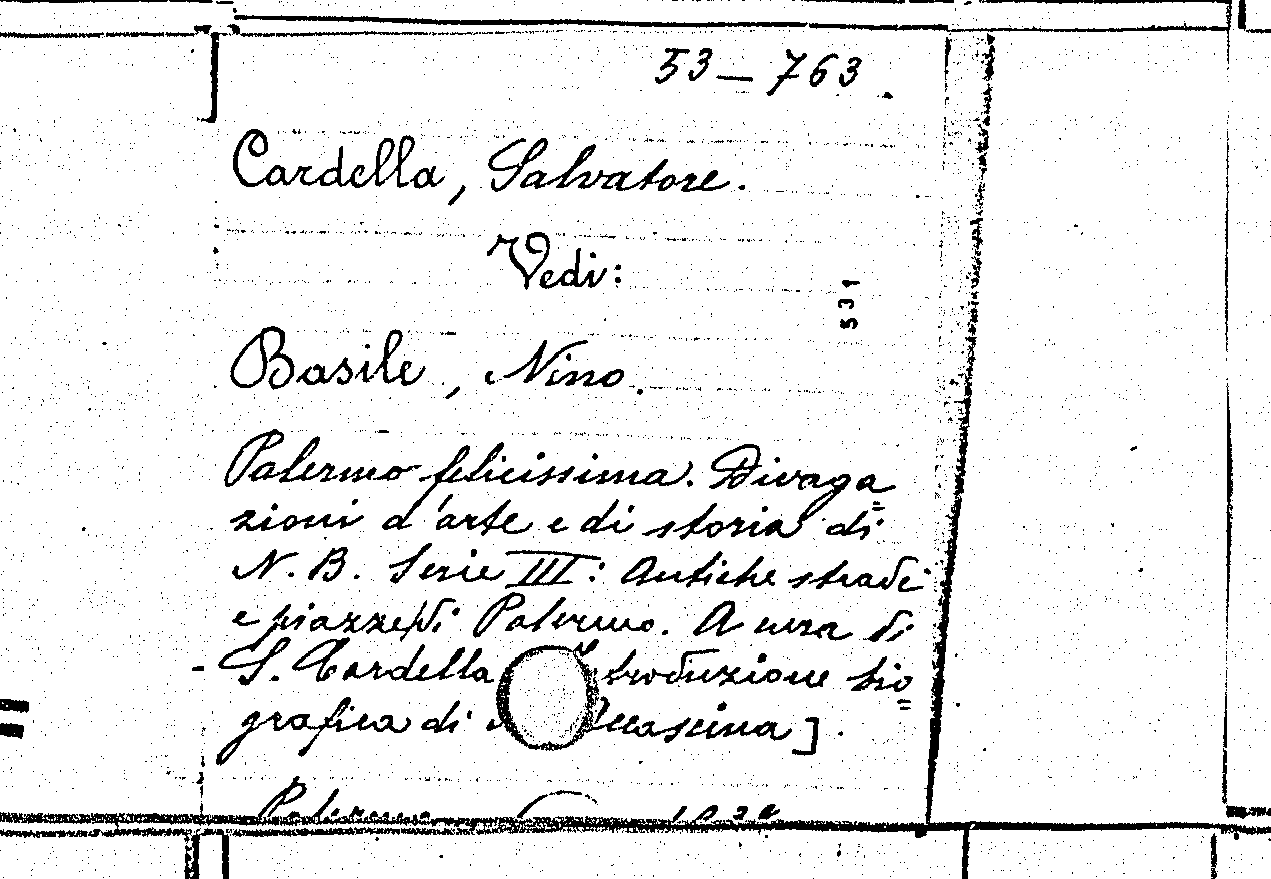 53 — 763.
Cardella, Salvatore.
Vedi:
531
Basile, Nino.
Palermo felicissima. Divaga=
zioni d'arte e di storia di
N. B. Serie III: Antiche strade
e piazze di Palermo. A cura di
S. Cardella troduzione bio=
grafica di ccascina].
Palermo